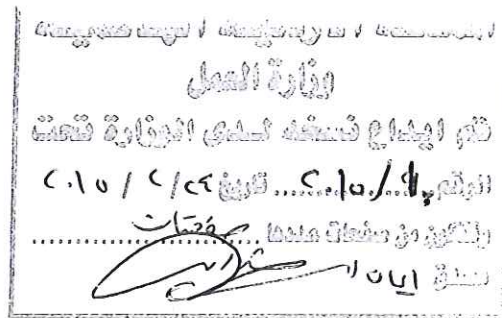 المملكة الاردنية الهاشمية
وزارة العمل
تم ايداع نسخه لدى الوزارة تحت
الرقم ٢٠١٥/ تاريخ ٢٠١٥ / ٢ / ٢٤
وتتكون من صفحات عددها صفحتان
ايمان